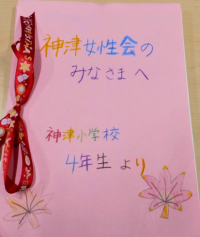 神津女性会の
みなさまへ
神津小学校
4年生より